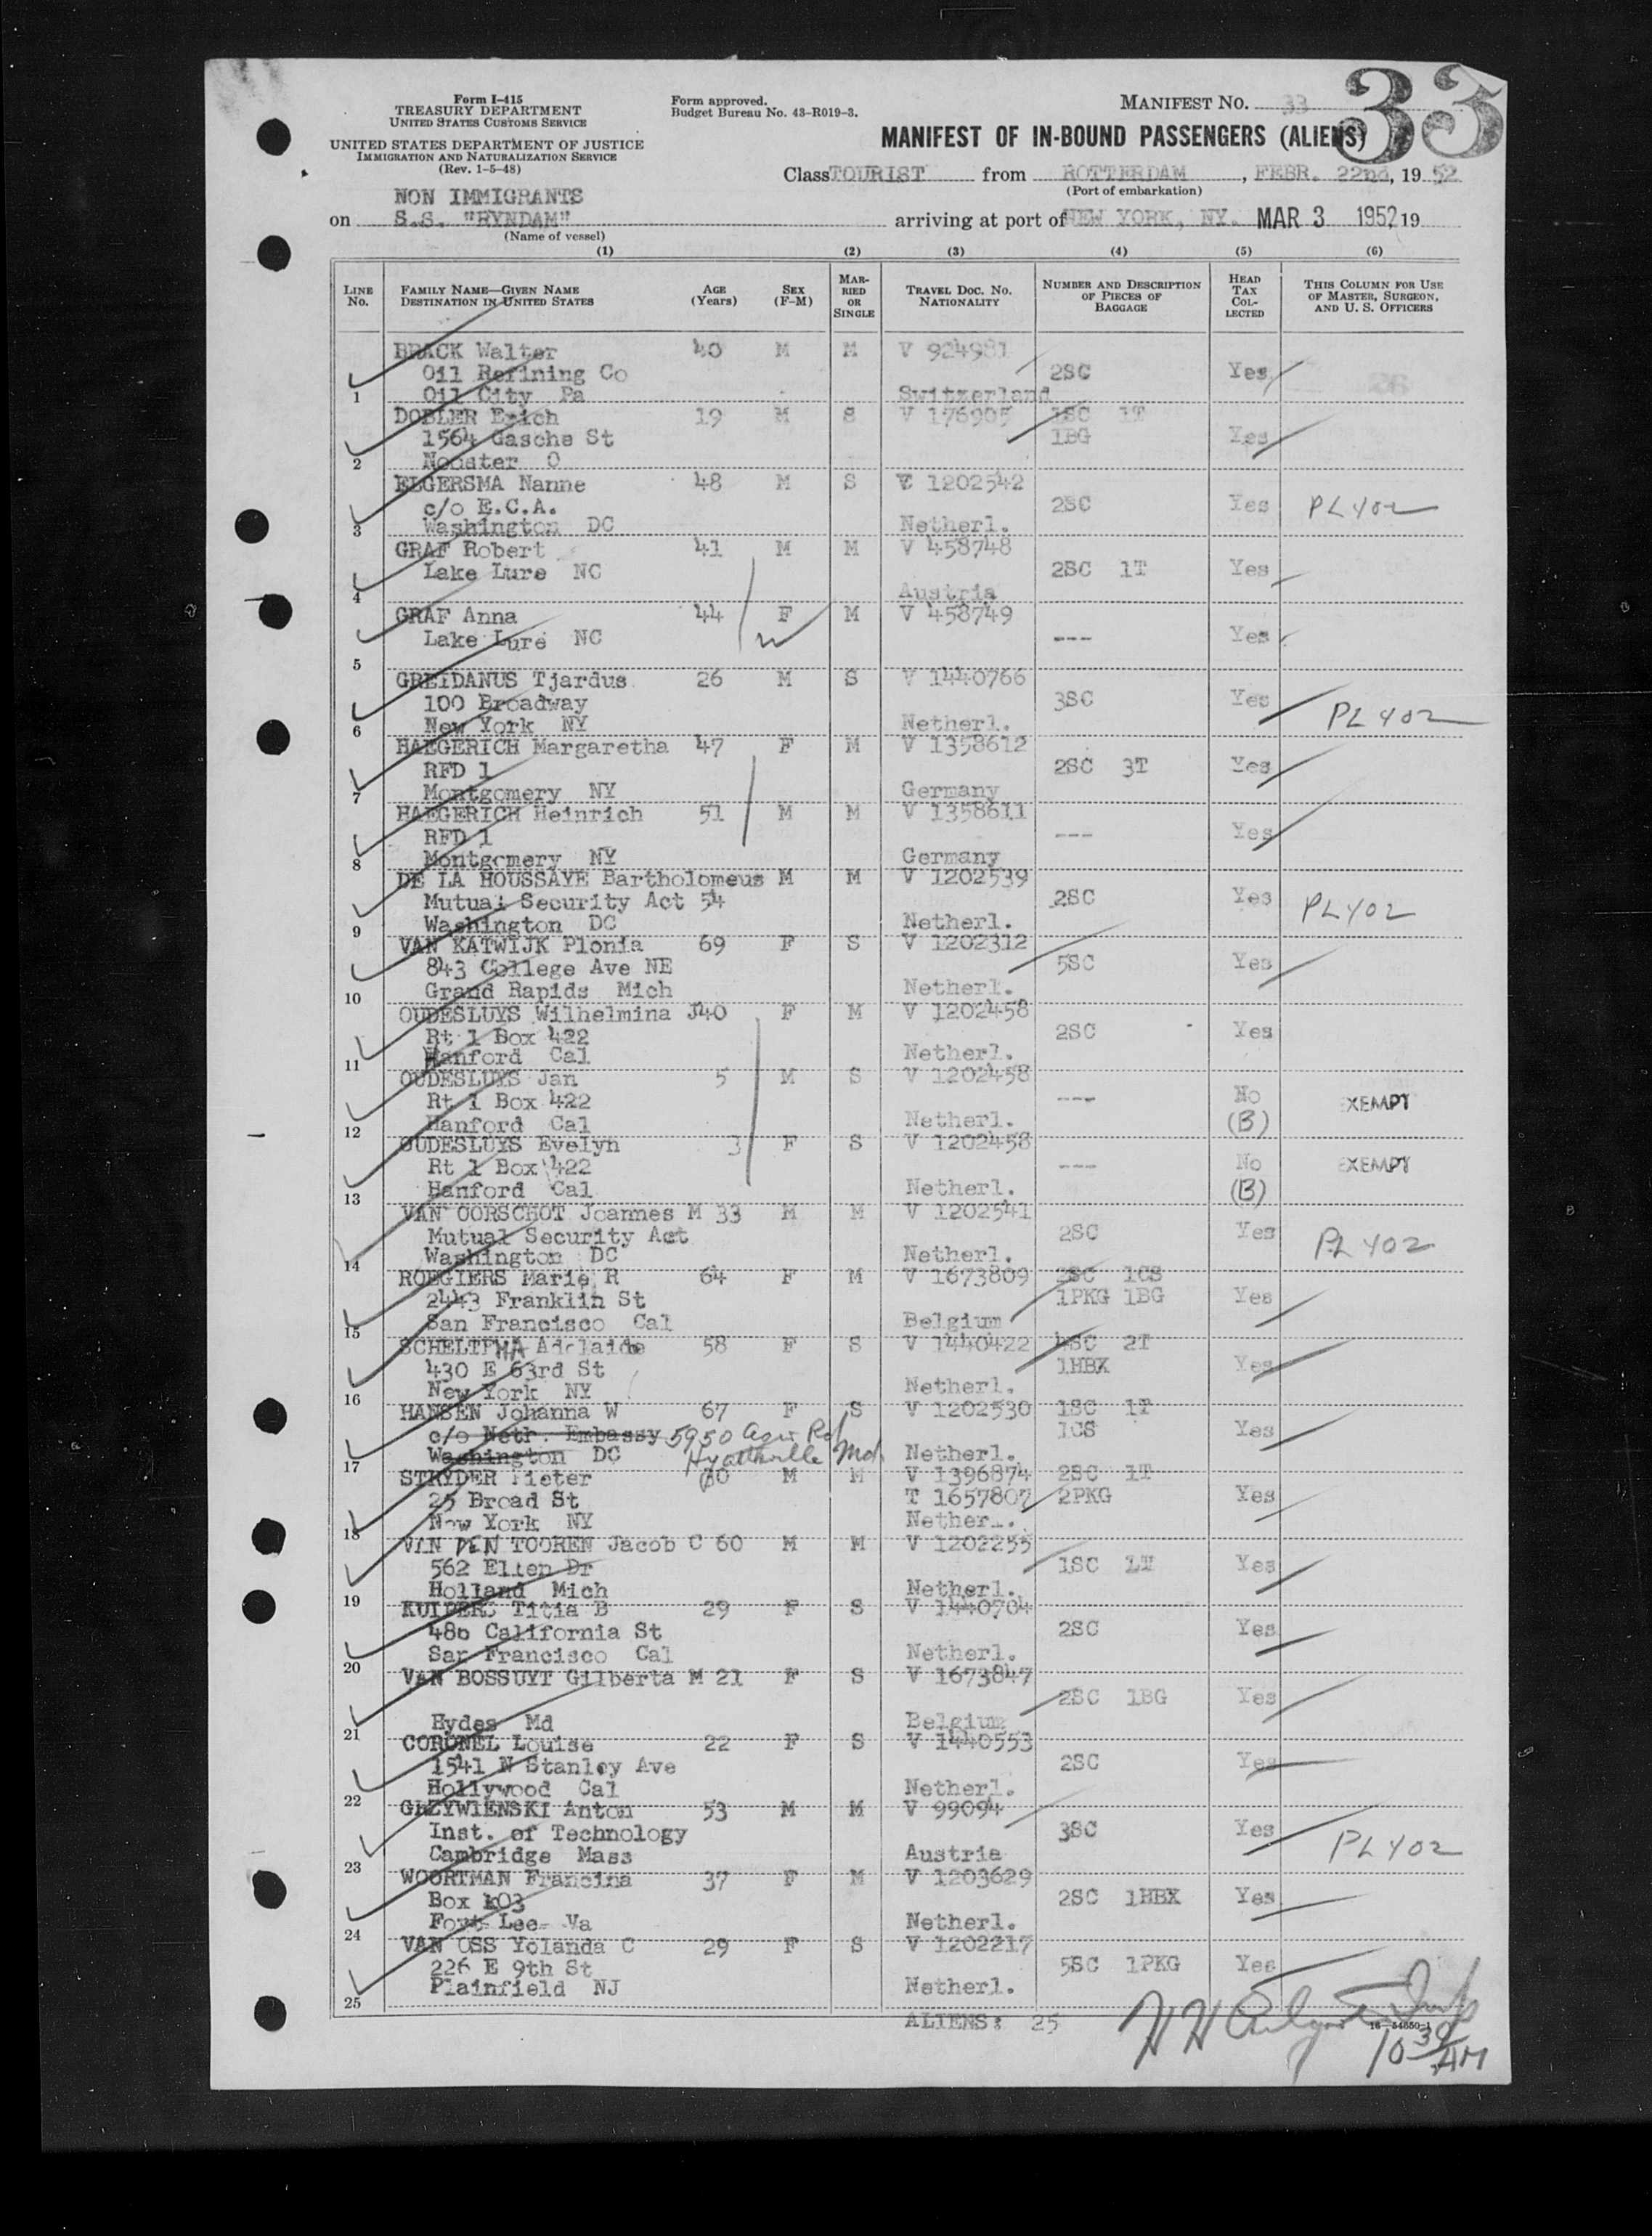 33
Form I-415
TREASURY DEPARTMENT
UNITED STATES CUSTOMS SERVICE
UNITED STATES DEPARTMENT OF JUSTICE
IMMIGRATION AND NATURALIZATION SERVICE
(Rev. 1-5-48)
Form approved.
Budget Bureau No. 43-R019-3.
MANIFEST NO. 33
MANIFEST OF IN-BOUND PASSENGERS (ALIENS)
Class TOURIST from ROTTERDAM, FEBR. 22nd, 19 52
(Port of embarkation)
NON IMMIGRANTS
on S.S. "RYNDAM" arriving at port of NEW YORK, NY. MAR 3 1952 19
(Name of vessel)
(1) (2) (3) (4) (5) (6)
LINE No. FAMILY NAME—GIVEN NAME DESTINATION IN UNITED STATES AGE (Years) SEX (F-M) MARRIED OR SINGLE TRAVEL DOC. NO. NATIONALITY NUMBER AND DESCRIPTION OF PIECES OF BAGGAGE HEAD TAX COLLECTED THIS COLUMN FOR USE OF MASTER, SURGEON, AND U. S. OFFICERS
BRACK Walter 40 M M V 924981
Oil Refining Co 2SC Yes
1 Oil City Pa Switzerland
DOBLER Erich 19 M S V 176905 1SC 1T
1564 Gasche St 1BG Yes
2 Nooster O
ELGERSMA Nanne 48 M S V 1202542
c/o E.C.A. 2SC Yes PL 402
3 Washington DC Netherl.
GRAF Robert 41 M M V 458748
Lake Lure NC 2SC 1T Yes
4 Austria
GRAF Anna 44 F M V 458749
Lake Lure NC --- Yes
5
GREIDANUS Tjardus 26 M S V 1440766
100 Broadway 3SC Yes PL 402
6 New York NY Netherl.
HAEGERICH Margaretha 47 F M V 1358612
RFD 1 2SC 3T Yes
7 Montgomery NY Germany
HAEGERICH Heinrich 51 M M V 1358611
RFD 1 --- Yes
8 Montgomery NY Germany
DE LA HOUSSAYE Bartholomeus M M V 1202539
Mutual Security Act 54 2SC Yes PL 402
9 Washington DC Netherl.
VAN KATWIJK Plonia 69 F S V 1202312
843 College Ave NE 5SC Yes
10 Grand Rapids Mich Netherl.
OUDESLUYS Wilhelmina J40 F M V 1202458
Rt 1 Box 422 2SC Yes
11 Hanford Cal Netherl.
OUDESLUYS Jan 5 M S V 1202458
Rt 1 Box 422 --- No EXEMPT
12 Hanford Cal Netherl. (B)
OUDESLUYS Evelyn 3 F S V 1202458
Rt 1 Box 422 --- No EXEMPT
13 Hanford Cal Netherl. (B)
VAN OORSCHOT Joannes M 33 M M V 1202541
Mutual Security Act 2SC Yes PL 402
14 Washington DC Netherl.
ROEGIERS Marie R 64 F M V 1673809 2SC 1CS
2443 Franklin St 1PKG 1BG Yes
15 San Francisco Cal Belgium
SCHELTEMA Adelaide 58 F S V 1440422 4SC 2T
430 E 63rd St 1HBX Yes
16 New York NY Netherl.
HANSEN Johanna W 67 F S V 1202530 1SC 1T
c/o Netr. Embassy 5950 Agri Rd 1CS Yes
17 Washington DC Hyattsville Md. Netherl.
STRYDER Pieter 60 M M V 1396874 2SC 1T
25 Broad St T 1657807 2PKG Yes
18 New York NY Nether.
VAN DEN TOOREN Jacob C 60 M M V 1202255
562 Ellen Dr 1SC 1T Yes
19 Holland Mich Netherl.
KUIPERS Titia B 29 F S V 1440704
486 California St 2SC Yes
20 San Francisco Cal Netherl.
VAN BOSSUYT Gilberta M 21 F S V 1673847
2SC 1BG Yes
21 Hydes Md Belgium
CORONEL Louise 22 F S V 1440553
1541 N Stanley Ave 2SC Yes
22 Hollywood Cal Netherl.
GRZYWIENSKI Anton 53 M M V 99094
Inst. of Technology 3SC Yes PL 402
23 Cambridge Mass Austria
WOORTMAN Francina 37 F M V 1203629
Box 103 2SC 1HBX Yes
24 Fort Lee Va Netherl.
VAN OSS Yolanda C 29 F S V 1202217
226 E 9th St 5SC 1PKG Yes
25 Plainfield NJ Netherl.
ALIENS: 25
16—54650-1
10 30 AM